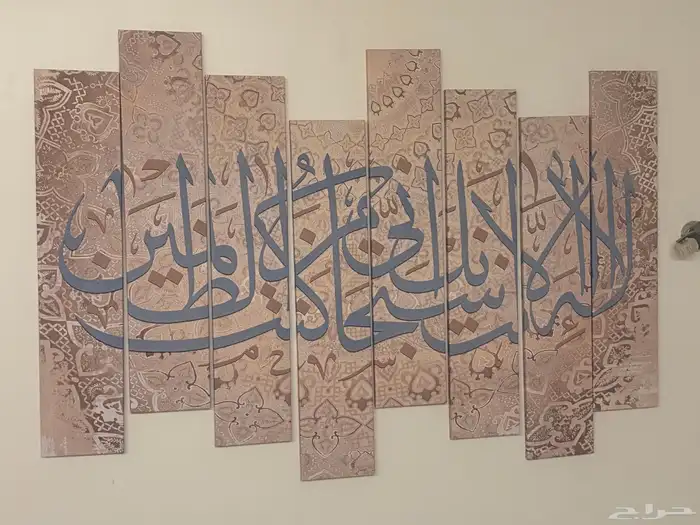 لا إله إلا أنت سبحانك إني كنت من الظالمين
حراج